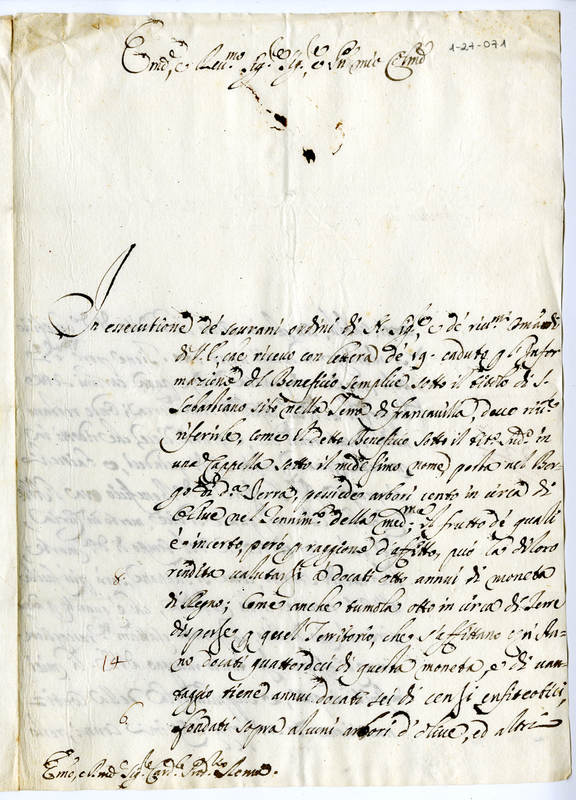 Em̃o, e Rev.mo Sig.re Sig.re, e P̃ñ mio Col.mo
1-27-071
In essecutione de sourani ordini di N. Sig.re e de riu.mi
di V. E. che riceuo con lettera de 19. caduto p l'Infor
matione del Beneficio semplice sotto il titolo di S.
Sebastiano sito nella Terra di francauilla, deuo
inferirle, come il detto Beneficio sotto il tit.o sud.o in
una Cappella sotto il medesimo nome posta nel Bor
go di d.a Terra, possiede arbori cento in circa di
Oliue nel Tenim.to della med.ma; il frutto de quali
è incerto, però p raggione d'affitto, può la di loro
8. rendita valutarsi à docati otto annui di moneta
di Regno; Come anche tumola otto in circa di Terre
disperse p quel Territorio, che s'affittano ogni An
14 no docati quattordeci di questa moneta, e di uan
taggio tiene annui docati sei di censi enfiteotici,
6. fondati sopra alcuni arbori d'oliue, ed altri
Em̃o, e Sig.re Card.le